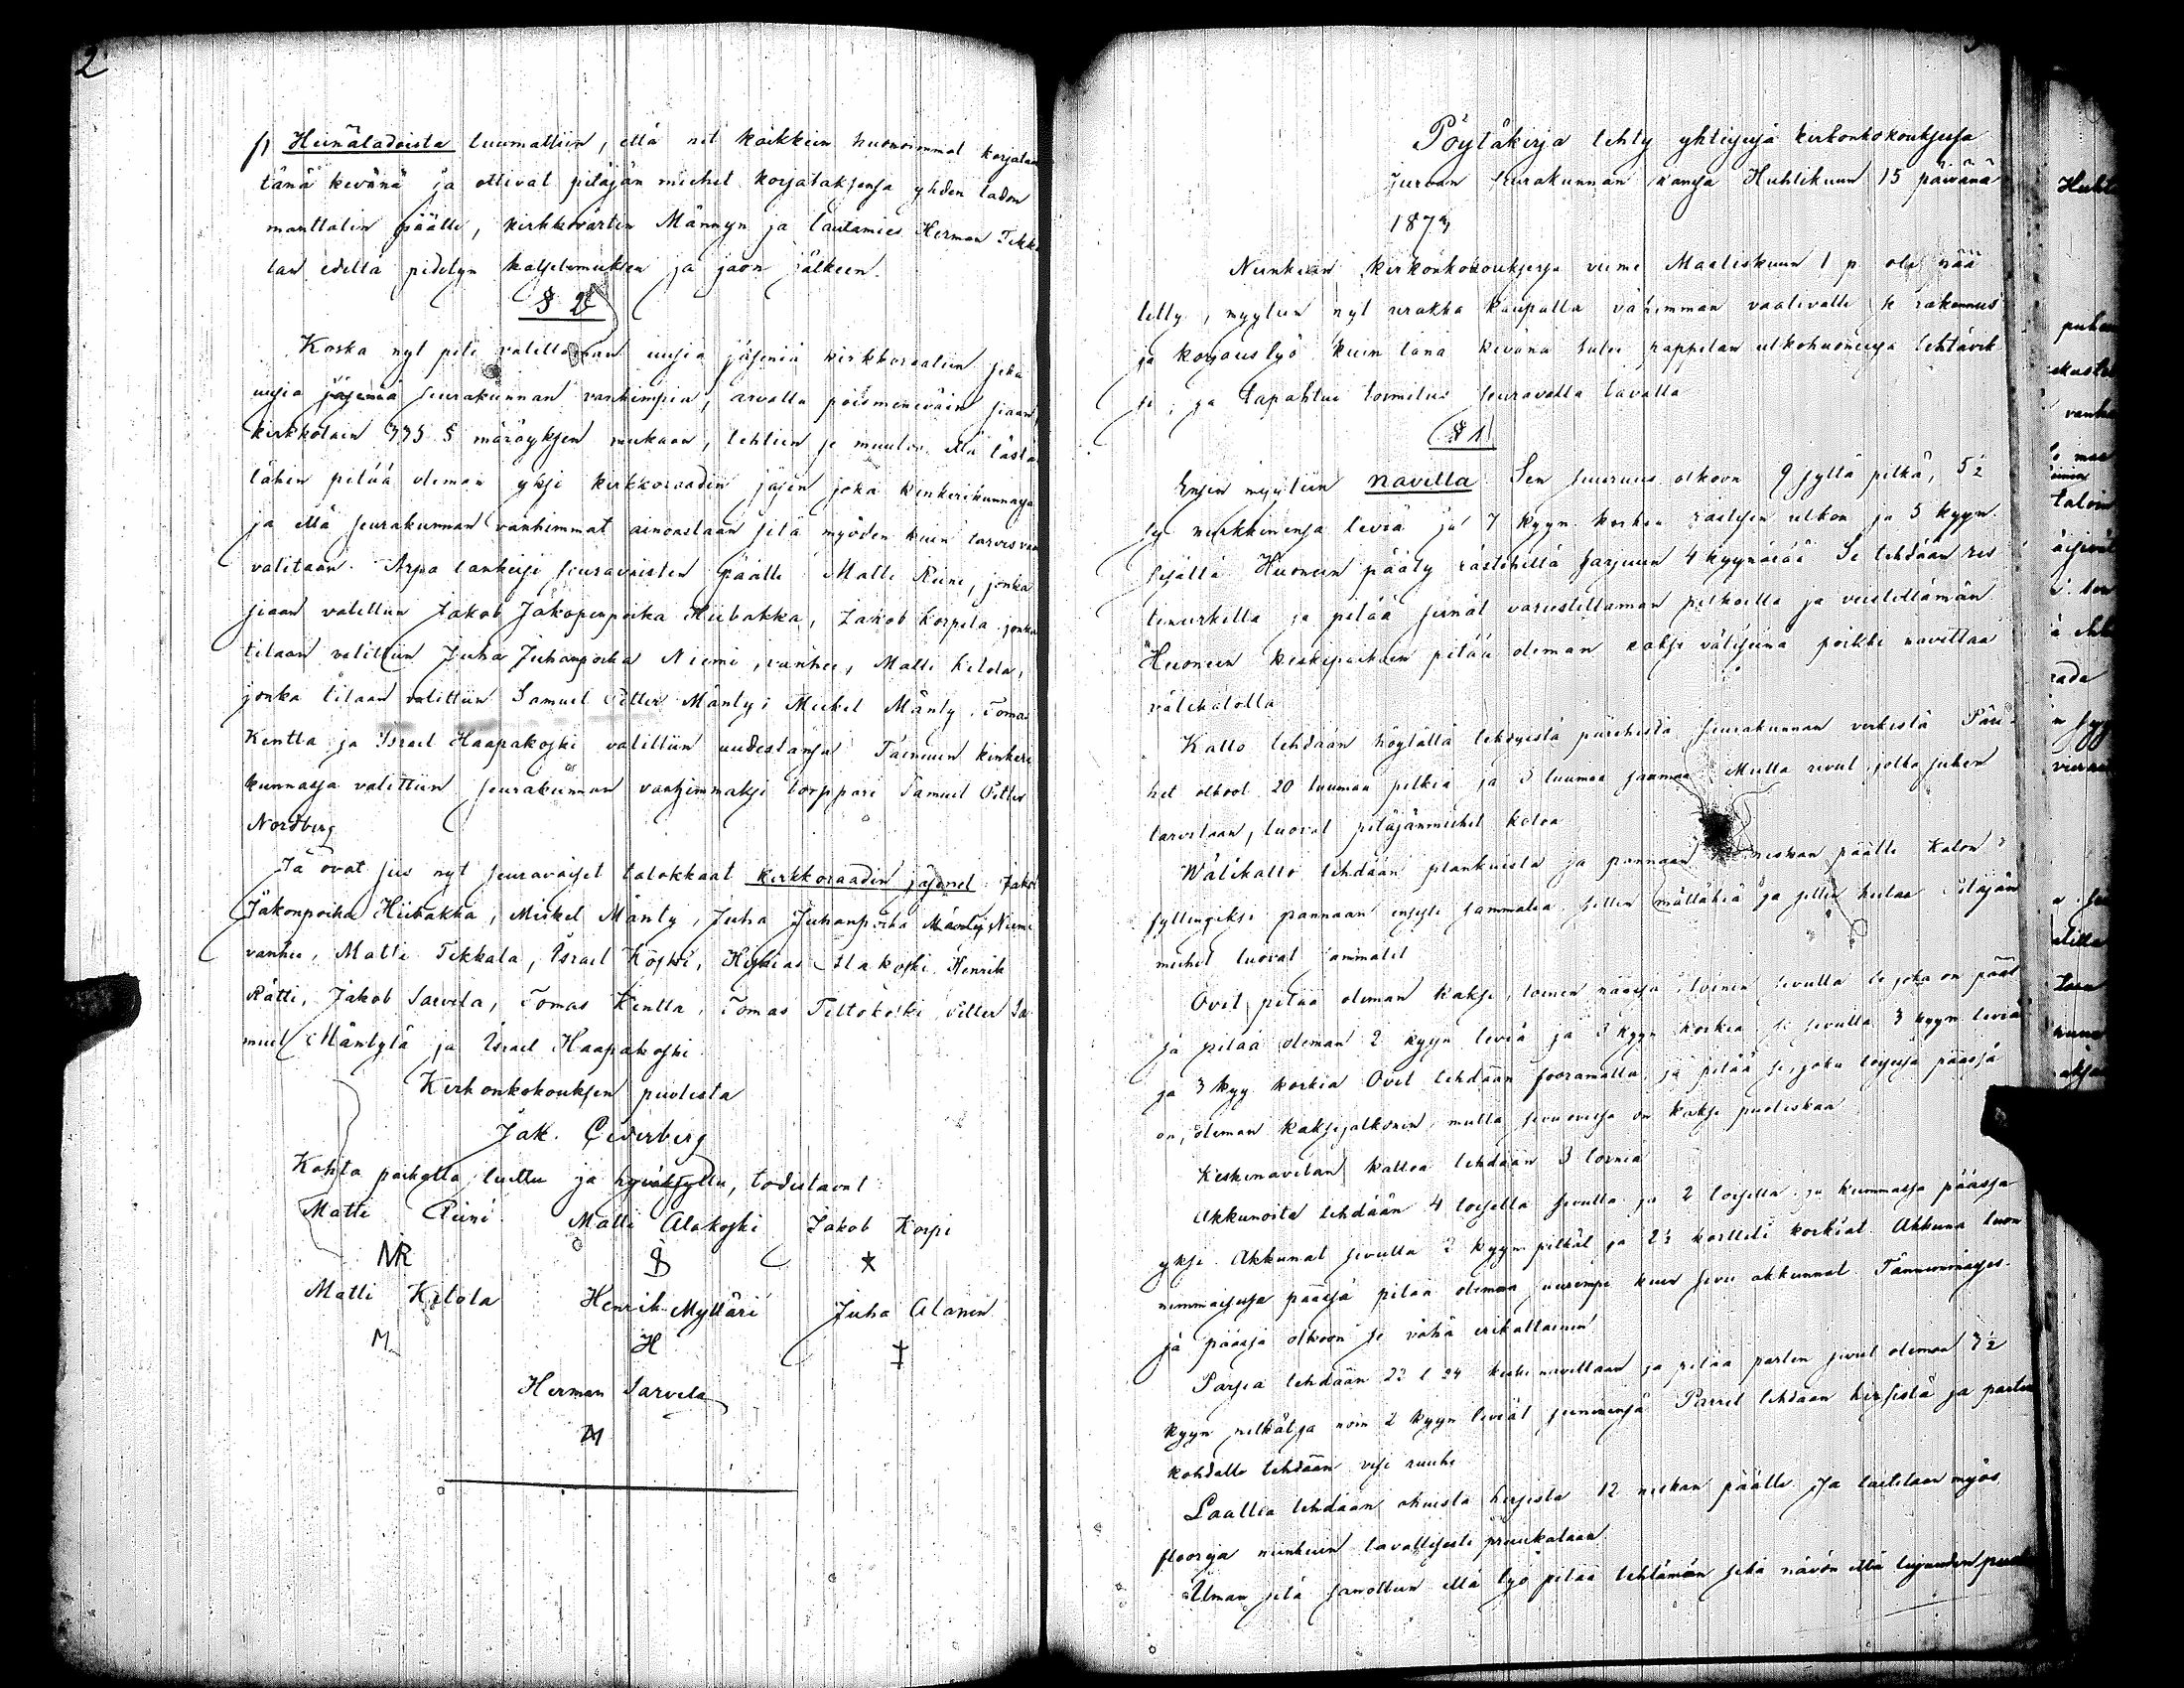 2
f) Heinäladoista luumattiin, että net kaikkein huonoimmat korjataan
tänä kevänä ja ottivat pitäjän miehet korjataksensa yhden ladon
manttalin päälle, kirkkovärtin Männyn ja lautamies Herman Tekka
lan edellä pidetyn katselemuksen ja jaon jälkeen.
§ 2
Koska nyt piti valittaman uusia jäseniä kirkkoraatiin sekä
uusia jäseniä seurakunnan vanhimpia, arvalla poismeneväin siaan,
kirkkolain 335 § määräyksen mukaan, tehtiin se muutos että tästä
lähin pitää oleman yksi kirkkoraadin jäsen joka kinkerikunnassa
ja että seurakunnan vanhimmat ainoastaan sitä myöden kuin tarvis vaa
valitaan. Arpa lankeisi seuravaisten päälle Matti Riini, jonka
siaan valittiin Jakob Jakopinpoika Hiibakka, Jakob Korpela jonka
tilaan valittiin Juha Juhanpoika Niemi, vanhee, Matti Kitola,
jonka tilaan valittiin Samuel Petter Mänty; Mickel Mänty, Tomas
Kentta ja Israel Haapakoski valittiin uudestansa Tainuun kinkeri
kunnassa valittiin seurakunnan vanhimmaksi torppari Samuel Petter
Nordberg
Ja ovat siis nyt seuravaiset talokkaat kirkkoraadin jäsenet: Jakob
Jakonpoika Hiibakka, Mickel Mänty, Juha Juhanpoika Niemi
vanhee, Matti Tekkala, Israel Koski, Alakoski, Henrik
Rätti, Jakob Sarvela, Tomas Kentta, Tomas Tiltokoski, Petter Sa
muel Mäntylä ja Israel Haapakoski.
Kirkonkokouksen puolesta
Jak. Cederberg
Kohta paikalla luettu ja hyväksytty, todistavat
Matti Riini Matti Alakoski Jakob Korpi
Matti Kitola Henrik Mylläri Juha Alanen
M H
Herman Sarvela
Pöytäkirja tehty yhteisesä kirkonkokouksesa
Jurvan seurakunnan kansa Huhtikuun 15 päivänä
187
Niinkuin kirkonkokouksesa viime Maaliskuun 1 p oli pää
tetty, myytiin nyt urakka kaupalla vähimman vaativalle se rakennus
ja korjaus työ kuin tänä kevänä tulee pappilan ulkohuoneissa tehtävik
si, ja tapahtui toimitus seuravalla tavalla
§ 1
Ensin myytiin navetta. Sen suuruus olkoon 9 syltä pitkä, 5½
syl nurkkinensa leviä ja 7 kyyn. korkea räästysen ulkon ja 5 kyyn.
sisältä Huoneen pääty rästihiltä harjuun 4 kyynärää Se tehdään ris
tinurkilla ja pitää seinät varustettaman pilkoilla ja veistettämän
Huoneen keskipaikoin pitää oleman kaksi väliseinä poikki navettaa
välikatolla
Katto tehdään höylättä tehdyistä päreheistä seurakunnan verkeistä Päre-
het olkoot 20 tuumaa pitkiä ja 3 tuumaa saumaa Mutta ruut jotka siihen
tarvitaan, tuovat pitäjänmiehet kotoa
Wälikatto tehdään plankuista ja pannaan niskan päälle Katon
syllingiksi pannaan ensisti sammalia sitten mättähiä ja sitte hietaa Pitäjän
miehet tuovat sammalet
Ovet pitää oleman kaksi, toinen pääsä, toinen sivulla se joka on pääs
sä pitää oleman 2 kyyn leviä ja 3 kyyn korkia se sivulla 3 kyyn leviä
ja 3 kyy korkia Ovet tehdään fooramalla, ja pitää se, joka toisessa pääsä
on, oleman kaksijatkoinen, mutta sivuovessa on kaksi puoliskaa
Keskinavetan kattoa tehdään 3 tornia
Akkunoita tehdään 4 toisella sivulla ja 2 toisella ja kummassa pääsä
yksi. Akkunat sivulla 2 kyyn pitkät ja 2½ korttelia korkiat. Akkuna luon
nimmaisesa pääsä pitää oleman suurempi kuin sivu akkunat. Tännimmäises-
sä pääsä olkoon se vähä erikaltainen
Parsia tehdään 23 l 24 keski navettaan ja pitää parten sivut oleman 3½
kyyn pitkät ja noin 2 kyyn leviät seininensä Parret tehdään hirsistä ja parten
kohdalle tehdään vesi ruuhi
Laattia tehdään ohuista hirsistä 12 niskan päälle Ja laitetaan myös
floorya niinkuin tavallisesti pruukataan
Ilman sitä sanottiin että työ pitää tehtämän sekä näön että lujuuden puol